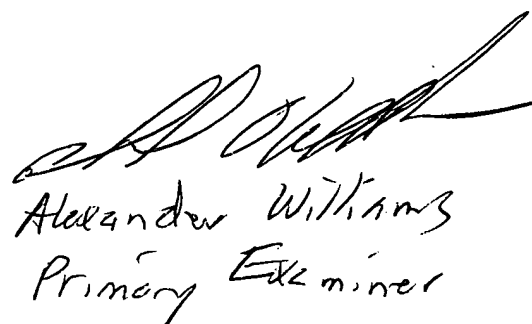 Alexander Williams
Primary Examiner